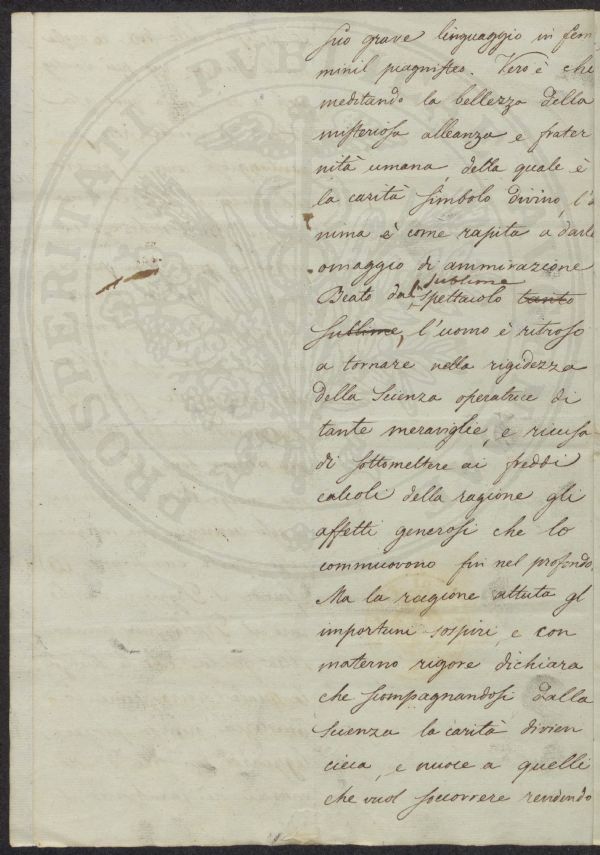 suo grave linguaggio in fem
minil piagnisteo. Vero è che
meditando la bellezza della
misteriosa alleanza e frater
nità umana, della quale è
la carità simbolo divino, l'a
nima è come rapita a darle
omaggio di ammirazione
sublime
Beato dal spettacolo tanto
sublime, l'uomo è ritroso
a tornare nella rigidezza
della scienza operatrice di
tante meraviglie, e ricusa
di sottomettere ai freddi
calcoli della ragione gli
affetti generosi che lo
commuovono fin nel profondo.
Ma la ragione attuta gl
importuni sospiri, e con
materno rigore dichiara
che scompagnandosi dalla
scienza la carità divien
cieca, e nuoce a quelli
che vuol soccorrere rendendo
PROSPERITATI PVB